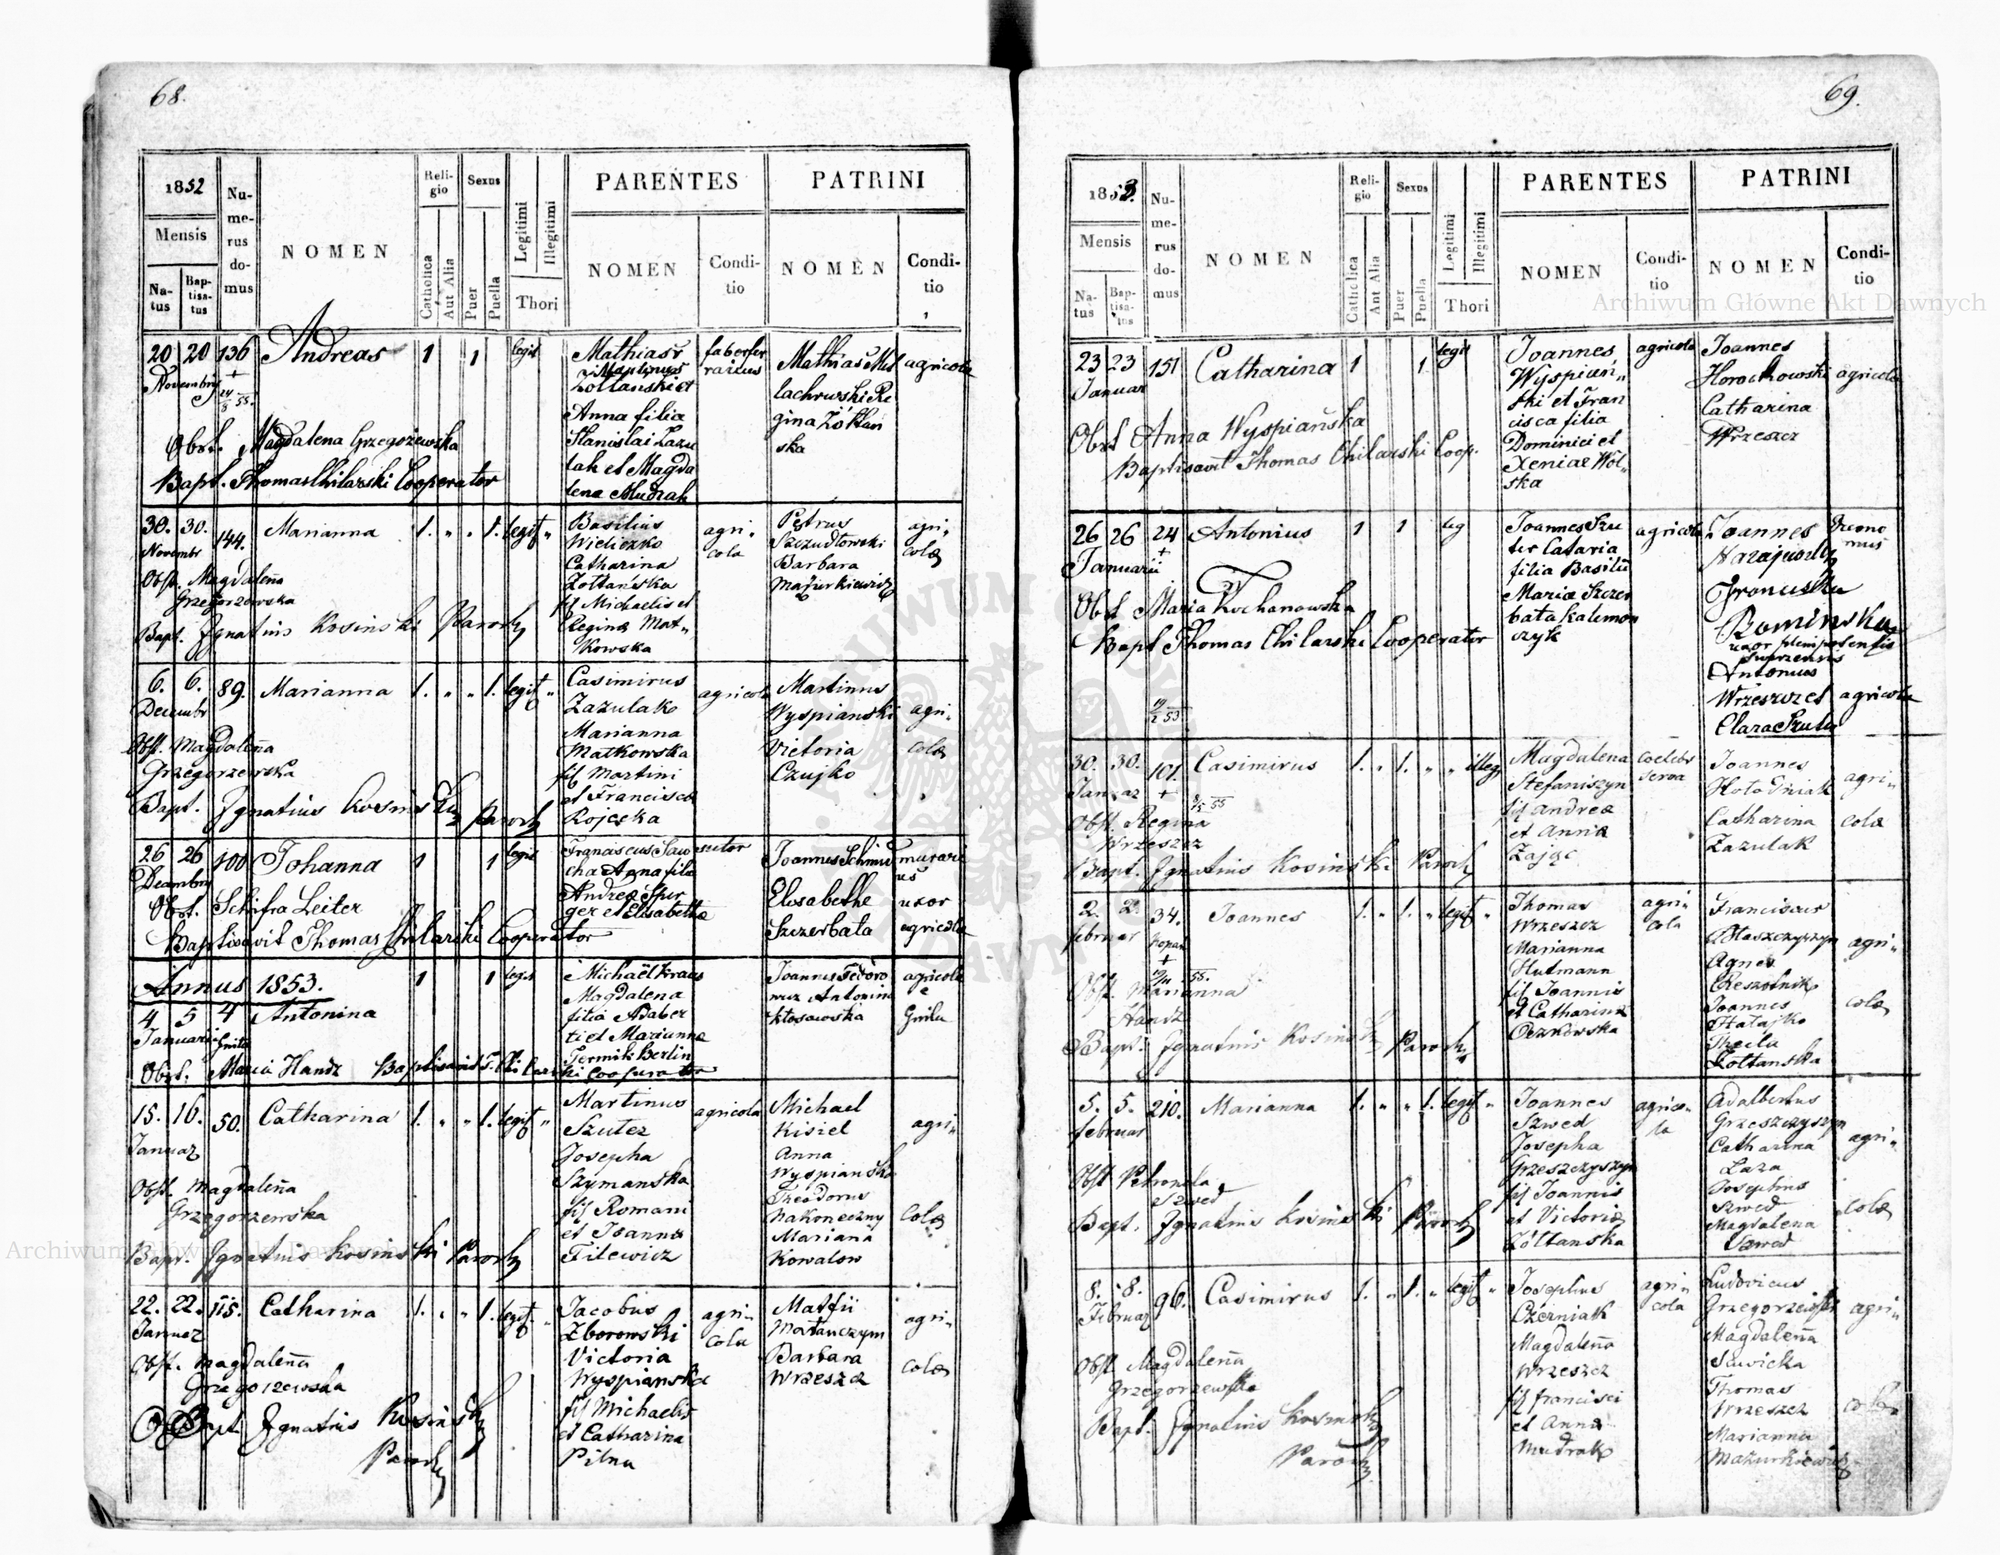 68.
1852
Mensis
Na-
tus
Bap-
tisa-
tus
Nu-
me-
rus
do-
mus
NOMEN
Reli-
gio
Catholica
Aut Alia
Sexus
Puer
Puella
Legitimi
Illegitimi
Thori
PARENTES
NOMEN
Condi-
tio
PATRINI
NOMEN
Condi-
tio
20 20 136 Andreas 1 1 legit
Novembris
Obst. Magdalena Grzegożewska
Bapt. Thomas Chilarski Cooperator
Mathias
Zołtanski et
Anna filia
Stanislai Zazu
lak et Magda
lena Mudrak
faber fer
rarius
Mathias Mal
lachowski Re
gina Zołtan
ska
agricola
30. 30. 144. Marianna 1. „ „ 1. legit „
Novembr
Obst. Magdalena
Grzegorzewska
Bapt. Ignatius Kosinski Paroch
Basilius
Wieliczko
Catharina
Zołtańska
fil Michaelis et
Regina Mat-
kowska
agri-
cola
Petrus
Szczudłowski
Barbara
Mazurkiewicz
agri-
colæ
6. 6. 89. Marianna 1. „ „ 1. legit „
Decembr
Obst. Magdalena
Grzegorzewska
Bapt. Ignatius Kosinski Paroch
Casimirus
Zazulak
Marianna
Matkowska
fil Martini
et Francisca
Rojeska
agricola
Martinus
Wyspianski
Victoria
Czujko
agri-
colæ
26 26 100 Johanna 1 1 legit
Decembris
Obst. Schifra Leiter
Baptisavit Thomas Chilarski Cooperator
Franciscus Saw
cha Anna filia
Andreæ Spur
ger et Elisabetha
sutor
Joannes Schmid
Elisabetha
Szczerbata
murari
us
uxor
agricola
Annus 1853.
4 5 4 Antonina 1 1 legit
Januarii Gnila
Obst. Maria Handz Baptisavit T. Chilarski Cooperator
Michaël Kraus
Magdalena
filia Adaber
ti et Marianna
Termik Berlin
Joannes Fedoro
wicz Antonina
Kłosowska
agricola
Gnila
15. 16. 50. Catharina 1. „ „ 1. legit „
Januar
Obst. Magdalena
Grzegorzewska
Bapt. Ignatius Kosinski Paroch
Martinus
Szutez
Josepha
Szymanska
fil Romani
et Joanna
Filewicz
agricola
Michael
Kisiel
Anna
Wyspianska
Theodorus
Nakoneczny
Mariana
Kowalow
agri-
colæ
22. 22. 115. Catharina 1. „ „ 1. legit „
Januar
Obst. Magdalena
Grzegorzewska
Bapt Ignatius Kosinski
Paroch
Jacobus
Zborowski
Victoria
Wyspianska
fil Michaelis
et Catharina
Pilna
agri-
cola
Matfii
Matanczym
Barbara
Wrzeszcz
agri-
colæ
69.
1853.
Mensis
Na-
tus
Bap-
tisa-
tus
Nu-
me-
rus
do-
mus
NOMEN
Reli-
gio
Catholica
Aut Alia
Sexus
Puer
Puella
Legitimi
Illegitimi
Thori
PARENTES
NOMEN
Condi-
tio
PATRINI
NOMEN
Condi-
tio
23 23 151 Catharina 1 1 legit
Januar
Obst Anna Wyspiańska
Baptisavit Thomas Chilarski Coop.
Joannes
Wyspian-
ski et Fran
cisca filia
Dominici et
Xeniæ Wol-
ska
agricola
Joannes
Horochowski
Catharina
Wrzeszcz
agricola
26 26 24 Antonius 1 1 leg
Januarii
Obst Maria Kochanowska
Bapt Thomas Chilarski Cooperator
Joannes Szu
ter Cataria
filia Basilii
Maria Szczer
bata Kalemon
czyk
agricola
Joannes
Franciszka
Rominska
uxor plenipotentis
Antonius
Wrzeszcz et
Clara Szuter
agricola
30. 30. 101. Casimirus 1. „ 1. „ „ illeg
Januar
Obst. Regina
Wrzeszcz
Bapt. Ignatius Kosinski Paroch
Magdalena
Stefaniszyn
fil Andreæ
et Anna
Zając
coelebs
serva
Joannes
Hołodniak
Catharina
Zazulak
agri-
colæ
2. 2. 34. Joannes 1. „ 1. „ legit „
Februar
Obst. Marianna
Handz
Bapt. Ignatius Kosinski Paroch
Thomas
Wrzeszcz
Marianna
Hutmann
fil Joannis
et Catharina
Oczkowska
agri-
cola
Franciscus
Błaszczyszyn
Agnes
Czeszelnik
Joannes
Hałajko
Thecla
Zołtanska
agri-
colæ
5. 5. 210. Marianna 1. „ „ 1. legit „
Februar
Obst Petronela
Szwed
Bapt. Ignatius Kosinski Paroch
Joannes
Szwed
Josepha
Grzeszczyszyn
fil Joannis
et Victoria
Zołtanska
agrico-
la
Adalbertus
Grzeszczyszyn
Catharina
Laza
Josephus
Szwed
Magdalena
Szwed
agri-
colæ
8. 8. 96. Casimirus 1. „ 1. „ legit „
Februar
Obst Magdalena
Grzegorzewska
Bapt. Ignatius Kosinski
Paroch
Josephus
Czerniak
Magdalena
Wrzeszcz
fil Francisci
et Anna
Mudrak
agri-
cola
Ludovicus
Grzegorzewski
Magdalena
Sawicka
Thomas
Wrzeszcz
Marianna
Mazurkiewicz
agri-
colæ
Archiwum Główne Akt Dawnych